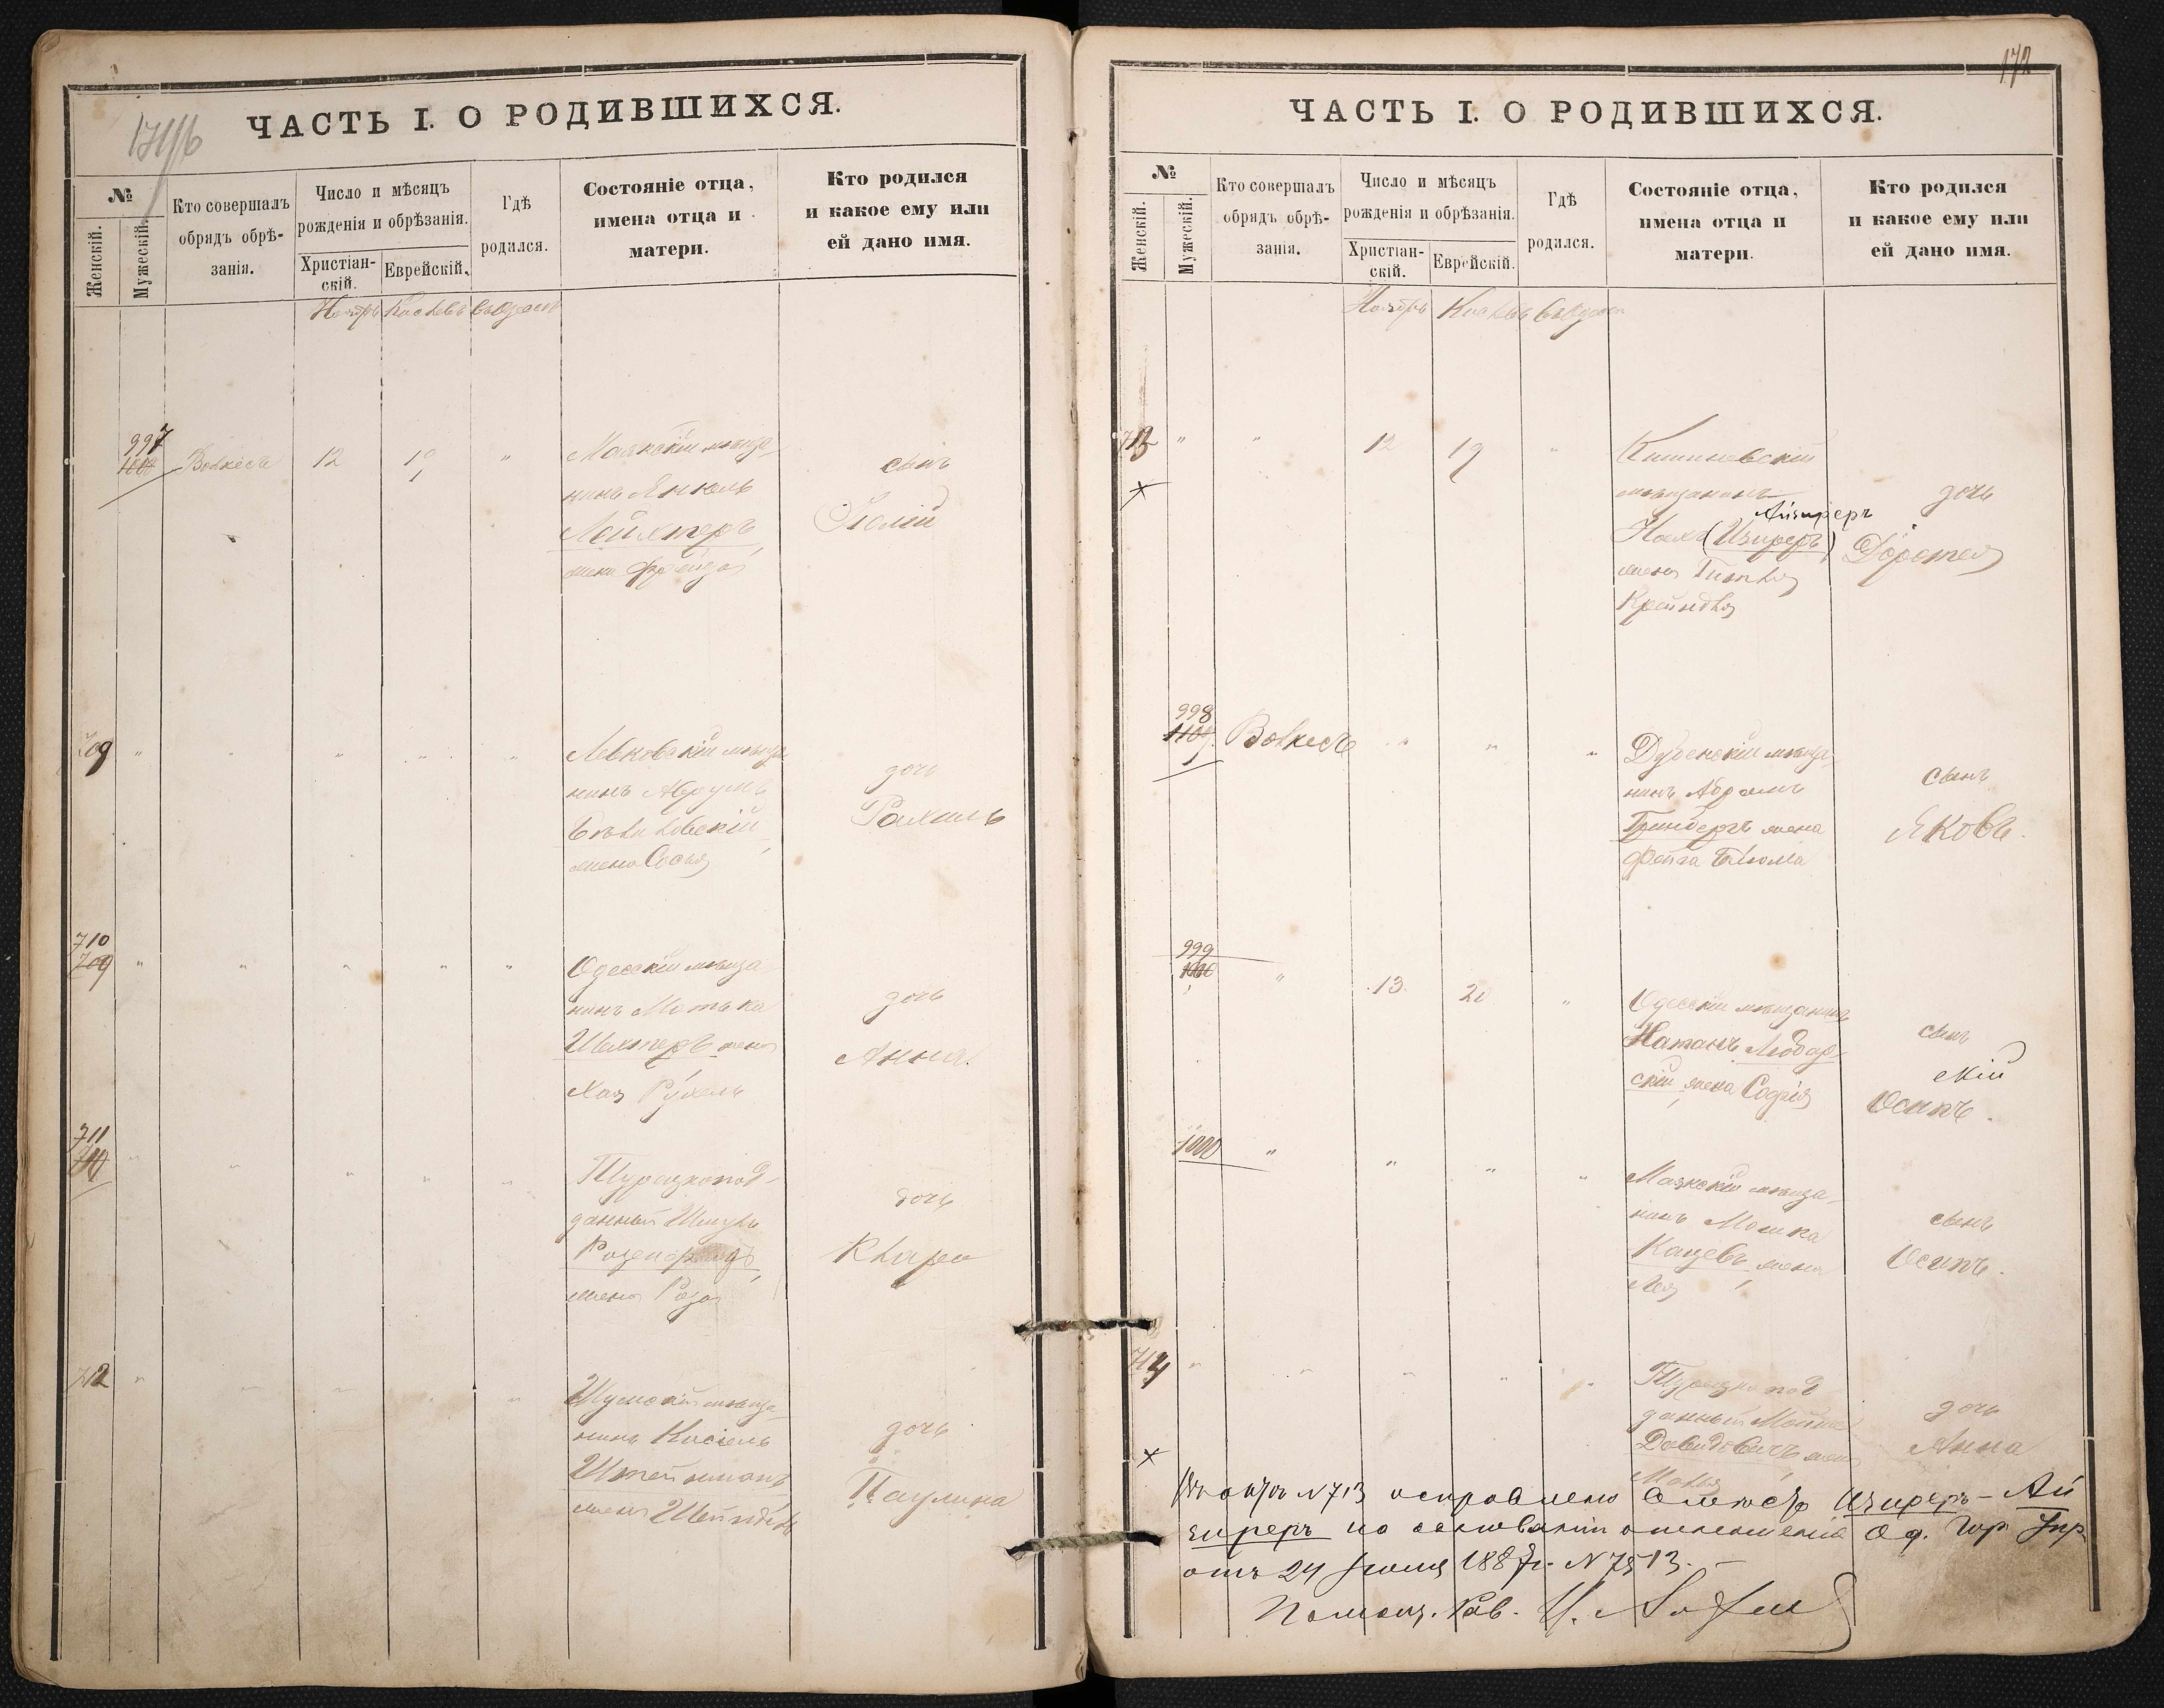 171/б
ЧАСТЬ I. О РОДИВШИХСЯ.
№
Женскій.
Мужескій.
Кто совершалъ
обрядъ обрѣ-
занія.
Число и мѣсяцъ
рожденія и обрѣзанія.
Христіан-
скій.
Еврейскій.
Гдѣ
родился.
Состояніе отца,
имена отца и
матери.
Кто родился
и какое ему или
ей дано имя.
Ноябрь Кислевъ въ Одессѣ
997 Волкесъ 12 19 "
Маякскій мѣща-
нинъ Янкель
Лейхтеръ
жена Фрейда
сынъ
Юлій
709 " " " " "
мѣща
нинъ
жена Сося
дочь
Рахиль
710
709 " " " " "
Одесскій мѣща
нинъ Мотька
Шехтеръ жена
Хая Рухель
дочь
Анна.
711
710 " " " " "
Турецкопод-
данный Шмуль
жена Роза
дочь
Клара
712 " " " "
Шумскій мѣща-
нинъ Кисіель
Штейнманъ
жена Шейндель
дочь
Паулина
172
ЧАСТЬ I. О РОДИВШИХСЯ.
№
Женскій.
Мужескій.
Кто совершалъ
обрядъ обрѣ-
занія.
Число и мѣсяцъ
рожденія и обрѣзанія.
Христіан-
скій.
Еврейскій.
Гдѣ
родился.
Состояніе отца,
имена отца и
матери.
Кто родился
и какое ему или
ей дано имя.
Ноябрь Кислевъ въ Одессѣ
713 " " 12 19 "
Кишиневскій
мѣщанинъ
Айзиреръ
(Изиреръ)
жена Гитля
Крейндля
дочь
Доротея
998
Волкесъ " " "
Дубенскій мѣща-
нинъ Абрамъ
Гринбергъ жена
Фейга Блюма
сынъ
Яковъ.
999
" 13. 20 "
Одесскій мѣщанинъ
Натанъ Любар-
скій жена Софія
сынъ
скій
Осипъ.
1000 " " " "
Маякскій мѣща-
нинъ Мошка
Кацевъ жена
Лея
сынъ
Осипъ.
714 " " " " "
Турецкопод
данный
Давидовичъ жена
дочь
Анна
№ 713 исправлено вмѣсто Изиреръ - Ай
зиреръ на основаніи отношенія Од. Гор. Упр.
отъ 24 Іюля 1887 г. № 7513. -
Помощ. Рав.